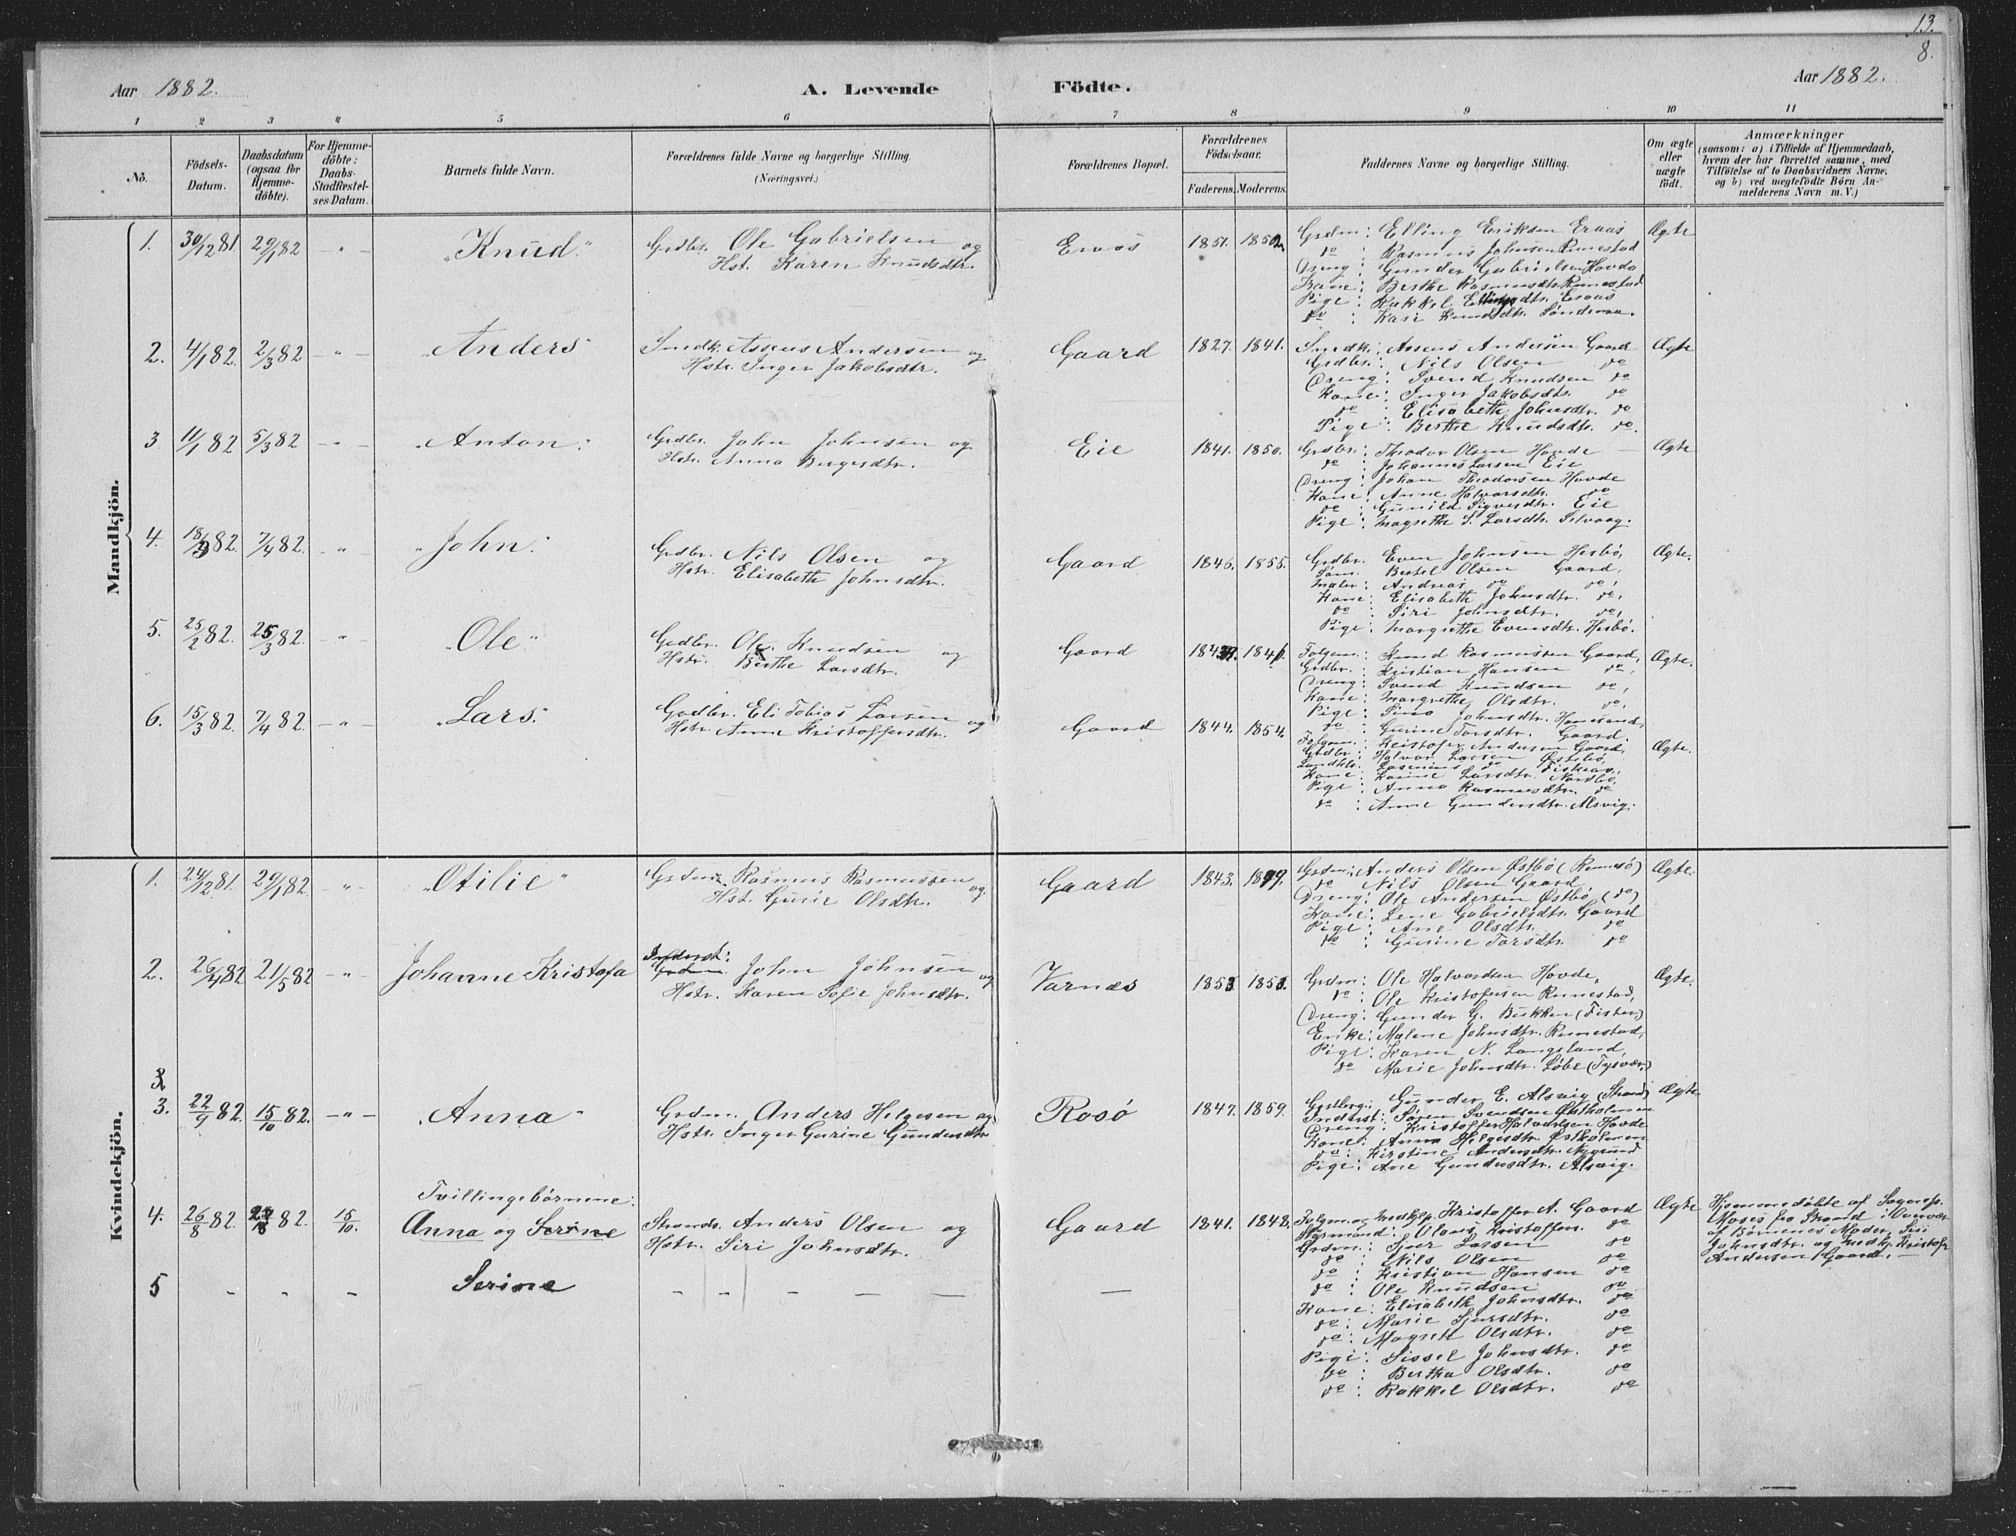 13.
8.
Aar 1882.
A. Levende Födte.
Aar 1882.
1 2 3 4 5 6 7 8 9 10 11
No.
Födsels-Datum.
Daabsdatum (ogsaa for Hjemme-döbte).
For Hjemme-döbte: Daabs-Stadfæstel-ses-Datum.
Barnets fulde Navn.
Forældrenes fulde Navne og borgerlige Stilling.
(Næringsvei.)
Forældrenes Bopæl.
Forældrenes Födselsaar.
Faderens. Moderens.
Faddernes Navne og borgerlige Stilling.
Om ægte eller uægte födt.
Anmærkninger
(saasom: a) i Tilfælde af Hjemmedaab, hvem der har forrettet samme, med Tilföielse af to Daabsvidners Navne, og b) ved uægtefödte Börn An-melderens Navn m. V.)
Mandkjön.
1. 30/12 81. 29/1 82 - " - "Knud." Grdbr. Ole Gabrielsen og
Hst. Karen Knudsdtr.
Eraas 1851. 1852.
Grdm: Elling Eriksen Eraas Ægte
do : Rasmus Johnsen Runestad
Dreng: Gunder Gabrielsen Hovda
Kone: Berthe Rasmusdtr. Runestad
Pige: Rakkel Ellingsdtr. Eraas
do : Kari Knudsdtr.
2. 4/1 82. 2/3 82 - " - "Anders" Smedk. Assens Andersen og
Hstr. Inger Jakobsdtr.
Gaard 1827. 1841.
Smedk: Assens Andersen Gaard Ægte
Grdbr: Nils Olsen do
Dreng: Svend Knudsen do
Kone: Inger Jakobsdtr. do
do : Elisabethe Johnsdtr. do
Pige: Berthe Knudsdtr. do.
3 11/1 82 5/3 82 - " - "Anton." Grdbr. John Johnsen og
Hst. Anna Bergesdtr.
Eie 1841. 1850.
Grdbr: Thodor Olsen Hovde Ægte
do : Johannes Larsen Eie
Dreng: Johan Thodorsen Hovde
Kone: Anne Halvorsdtr. do
do : Gunild Sigvesdtr. Eie
Pige: Magrethe S. Larsdtr.
4. 18/3 82. 7/4 82. - " - "John." Grdbr. Nils Olsen og
Hstr. Elisabethe Johnsdtr.
Gaard 1846. 1855.
Grdbr. Even Johnsen Hesbö, Ægte.
Bertel Olsen Gaard,
Andreas do do,
Kone: Elisabethe Johnsdtr. do,
do : Siri Johnsdtr. do,
Pige: Margrethe Evensdtr. Hesbö.
5. 25/2 82. 25/3 82. - " - "Ole." Grdbr. Ole Knudsen og
Hstr. Berthe Larsdtr.
Gaard
Folgem: Knud Rasmussen Gaard, Ægte.
Grdbr: Kristian Hansen do,
Dreng: Svend Knudsen do,
Kone: Margrethe Olsdtr. do,
Pige: Johnsdtr.
do : Gurine Torsdtr. Gaard.
6. 15/3 82. 7/4 82. - " - "Lars." Grdbr. Eli Tobias Larsen og
Hstr. Anne Kristoffersdtr.
Gaard 1844. 1854.
Folgem: Kristofer Andersen Gaard, Ægte.
Grdbr: Halvor Larsen Østebö,
Kone: Karine Larsdtr. Nordbö,
Pige: Anna Rasmusdtr. do
do : Anne Gundersdtr. Alsvig.
Kvindekjön.
1. 24/12 81. 29/1 82 - " - "Otilie" Grdm. Rasmus Rasmussen og
Hst. Gurie Olsdtr.
Gaard 1843.
Grdm: Anders Olsen Østbö (Runesö) Ægte.
do Nils Olsen Gaard
Dreng: Ole Andersen Østbö (do)
Kone: Lene Gabrielsdtr. Gaard
Pige: Ane Olsdtr. do
do : Gurine Torsdtr. do
2. 26/4 82 21/5 82 - " - Johanne Kristofa Inderst: John Johnsen og
Hstr. Karen Sofie Johnsdtr.
Varnæs 1853 1853.
Grdm: Ole Halvordsen Hovde, Ægte.
do : Ole Kristofersen Runestad,
Dreng: Gunder G. Bukken (Fister,)
Enke: Malene Johnsdtr. Runestad,
Pige: Karen N. Langeland,
do Marie Johnsdtr. Løbe (Tysvær,)
3. 22/9 82. 15/10 82. - " - "Anna" Grdm. Anders Helgesen og
Hstr. Inger Gurine Gundersdtr
Rosö 1847. 1859.
Gunder E. Alsvig (Strand) Ægte
Inderst: Søren Svendsen Østholmen
Dreng: Kristoffer Halvorsen Hovde
Kone: Anna Helgesdtr. Østholmen
do : Kirstine Andersdtr. Nygrund
Pige: Ane Gundersdtr. Alsvig.
Tvillingebörnene:
4. 26/8 82. 82. 15/10. Anna og Serine Strands. Anders Olsen og
Hstr. Siri Johnsdtr.
Gaard 1841. 1848.
Folgm. og Medhjlp. Kristoffer A. Gaard Ægte
Styrmand: Olaus Kristoffersn. do
Grdm: Sjur Larsen do
do : Nils Olsen do
do : Kristian Hansen do
do : Ole Knudsen do
Kone: Elisabeth Johnsdtr. do
do : Marie Sjursdtr. do
do : Magrete Olsdtr. do
Pige: Sissel Johnsdtr. do
do : Bertha Olsdtr. do
do : Rakkel Olsdtr. do
Hjemmedöbte af Sognepr.
Moses fra Strand i Overvær
af Börnenes Moder, Siri
Johnsdtr. og Medhj. Kristofr
Andersen Gaard. —
5 - - - Serine - - - - - —